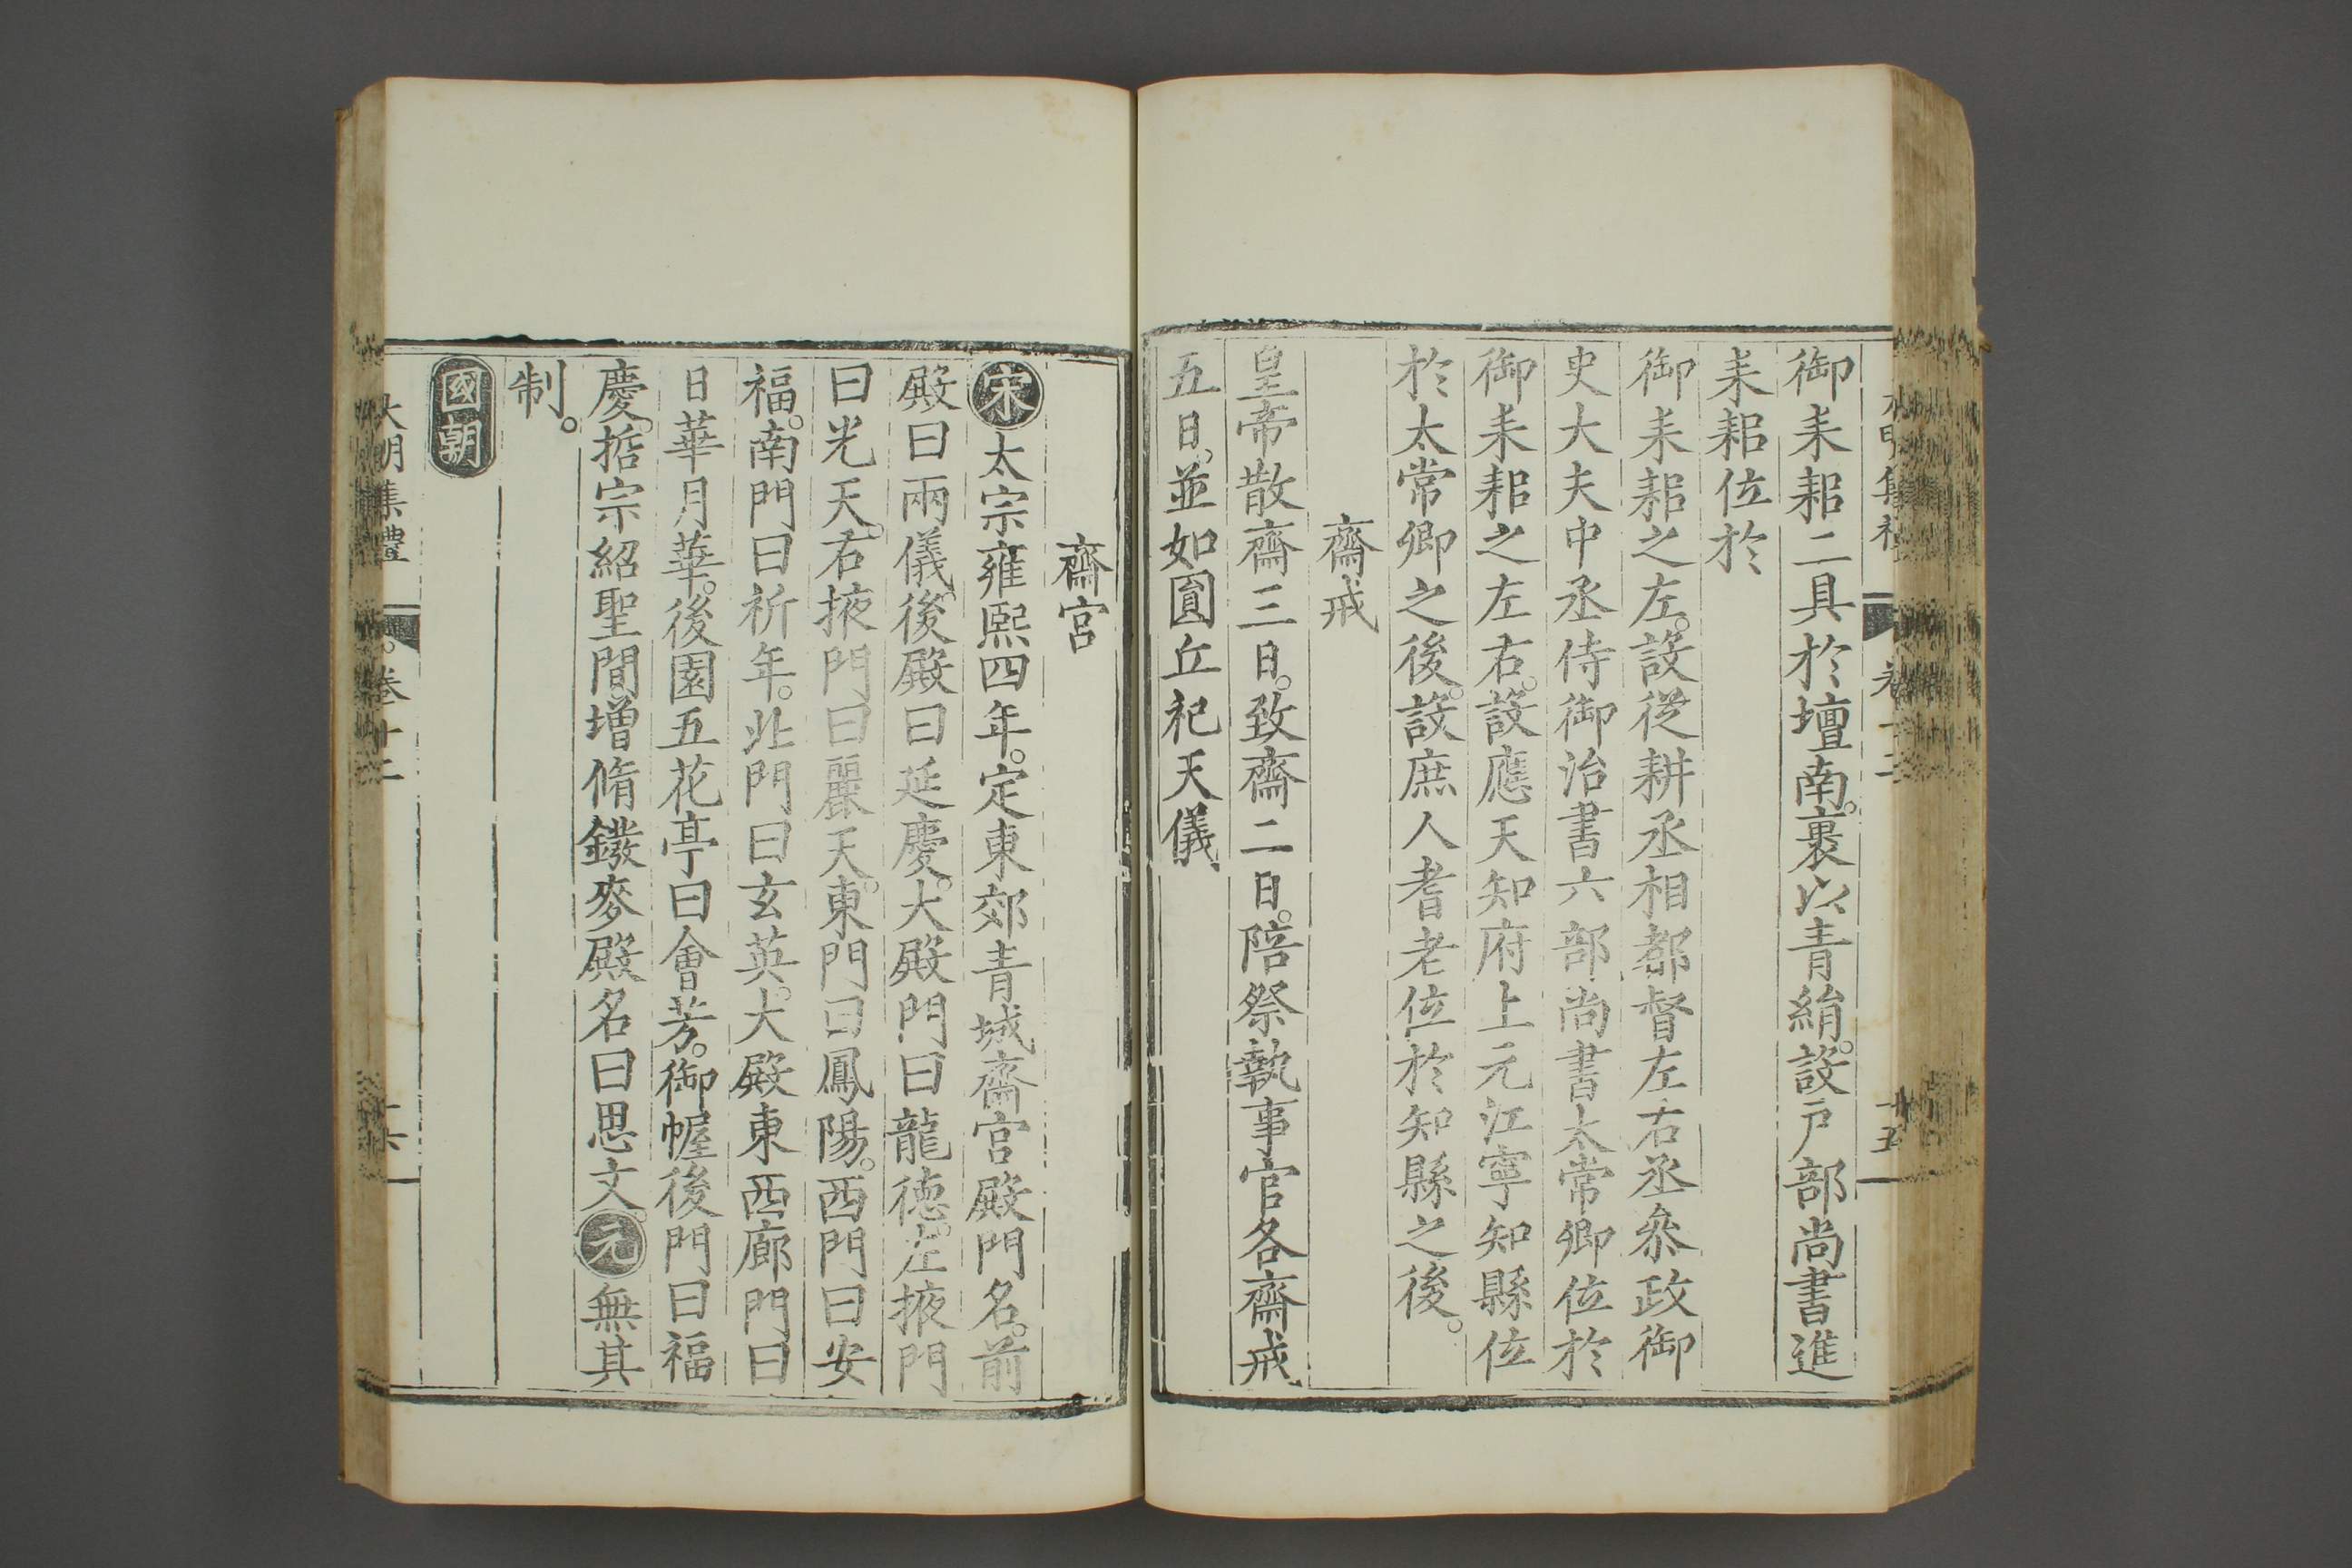 御耒耜二具於壇南。裹以青絹。設戶部尚書進
耒耜位於
御耒耜之左。設從耕丞相都督左右丞叅政御
史大夫中丞侍御治書六部尚書太常卿位於
御耒耜之左右。設應天知府上元江寧知縣位
於太常卿之後。設庶人耆老位於知縣之後。
齋戒
皇帝散齋三日。致齋二日。陪祭執事官各齋戒
五日。並如圓丘祀天儀
齋宮
宋太宗雍熙四年。定東郊青城齋宮殿門名。前
殿曰兩儀。後殿曰延慶。大殿門曰龍德。左掖門
曰光天。右掖門曰麗天。東門曰鳳陽。西門曰安
福。南門曰祈年。北門曰玄英。大殿東西廊門曰
日華月華。後園五花亭曰會芳。御幄後門曰福
慶。哲宗紹聖間增脩鐩麥殿名曰思文。元無其
制。
國朝
大明集禮 卷十二 十六